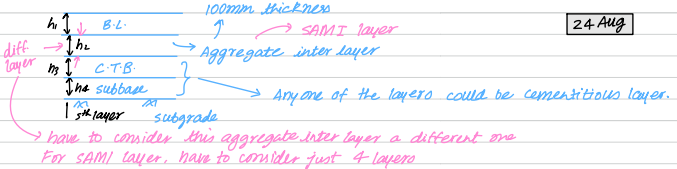 100mm thickness
24 Aug
h1 B.L.
SAMI layer
diff. layer
h2
Aggregate inter layer
h3 C.T.B.
h4 subbase
Any one of the layers could be cementitious layer.
5th layer
subgrade
have to consider this aggregate inter layer a different one
For SAMI layer, have to consider just 4 layers